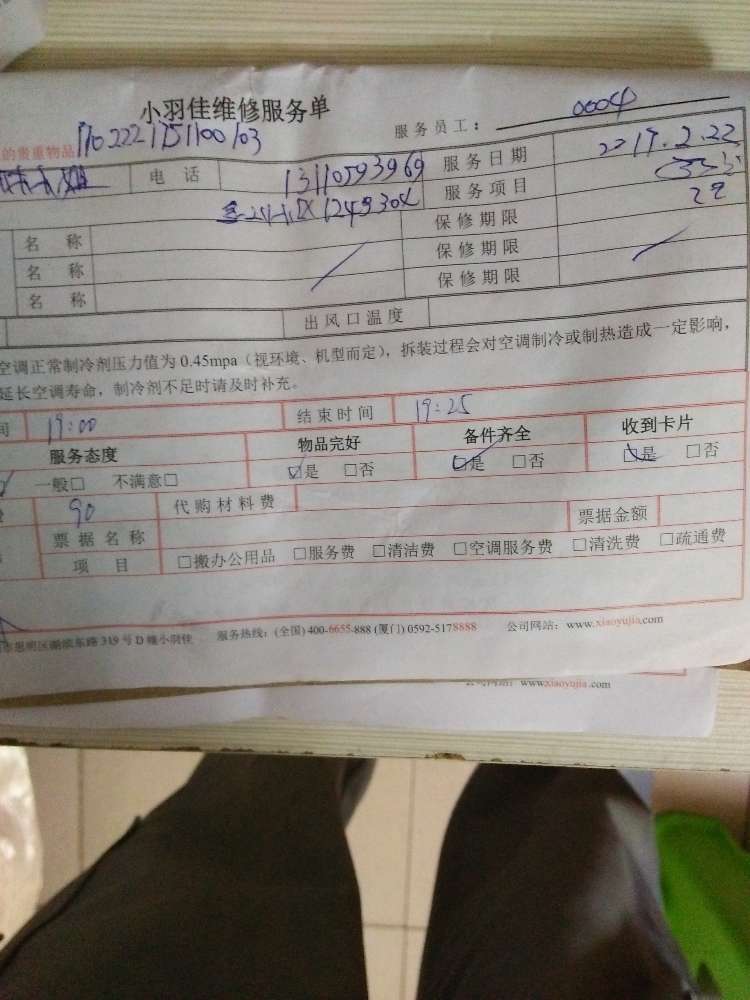 小羽佳维修服务单
服务员工： 0004
的贵重物品 1702221751100103
电 话 13110593969 服务日期 2017.2.22
1249304 服务项目
名 称 保修期限
名 称 保修期限
名 称 保修期限
出风口温度
空调正常制冷剂压力值为 0.45mpa（视环境、机型而定），拆装过程会对空调制冷或制热造成一定影响，
延长空调寿命，制冷剂不足时请及时补充。
间 19:00 结束时间 19:25
服务态度 物品完好 备件齐全 收到卡片
一般□ 不满意□ ☑是 □否 ☑是 □否 ☑是 □否
90 代购材料费
票据名称 票据金额
项 目 □搬办公用品 □服务费 □清洁费 □空调服务费 □清洗费 □疏通费
市思明区湖滨东路 319 号 D 幢小羽佳 服务热线：(全国) 400-6655-888 (厦门) 0592-5178888 公司网站：www.xiaoyujia.com
公司网站：www.xiaoyujia.com